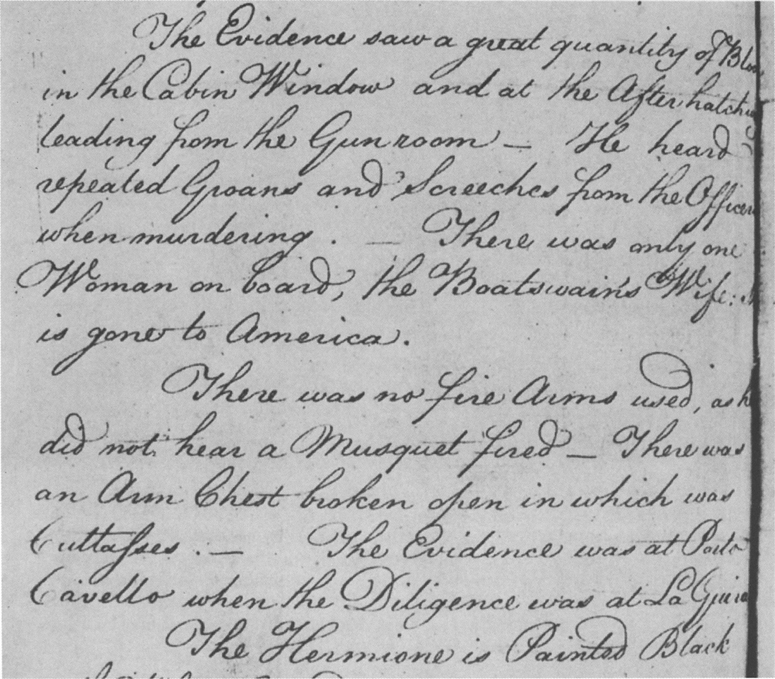 The Evidence saw a great quantity of
in the Cabin Window and at the After hatch
leading from the Gunroom — He heard
repeated Groans and Screeches from the Officers
when murdering. — There was only one
Woman on board, the Boatswain's Wife:
is gone to America.
There was no fire Arms used, as he
did not hear a Musquet fired — There was
an Arm Chest broken open in which was
Cutlasses. — The Evidence was at Porto
Cavello when the Diligence was at La Guira
The Hermione is Painted Black